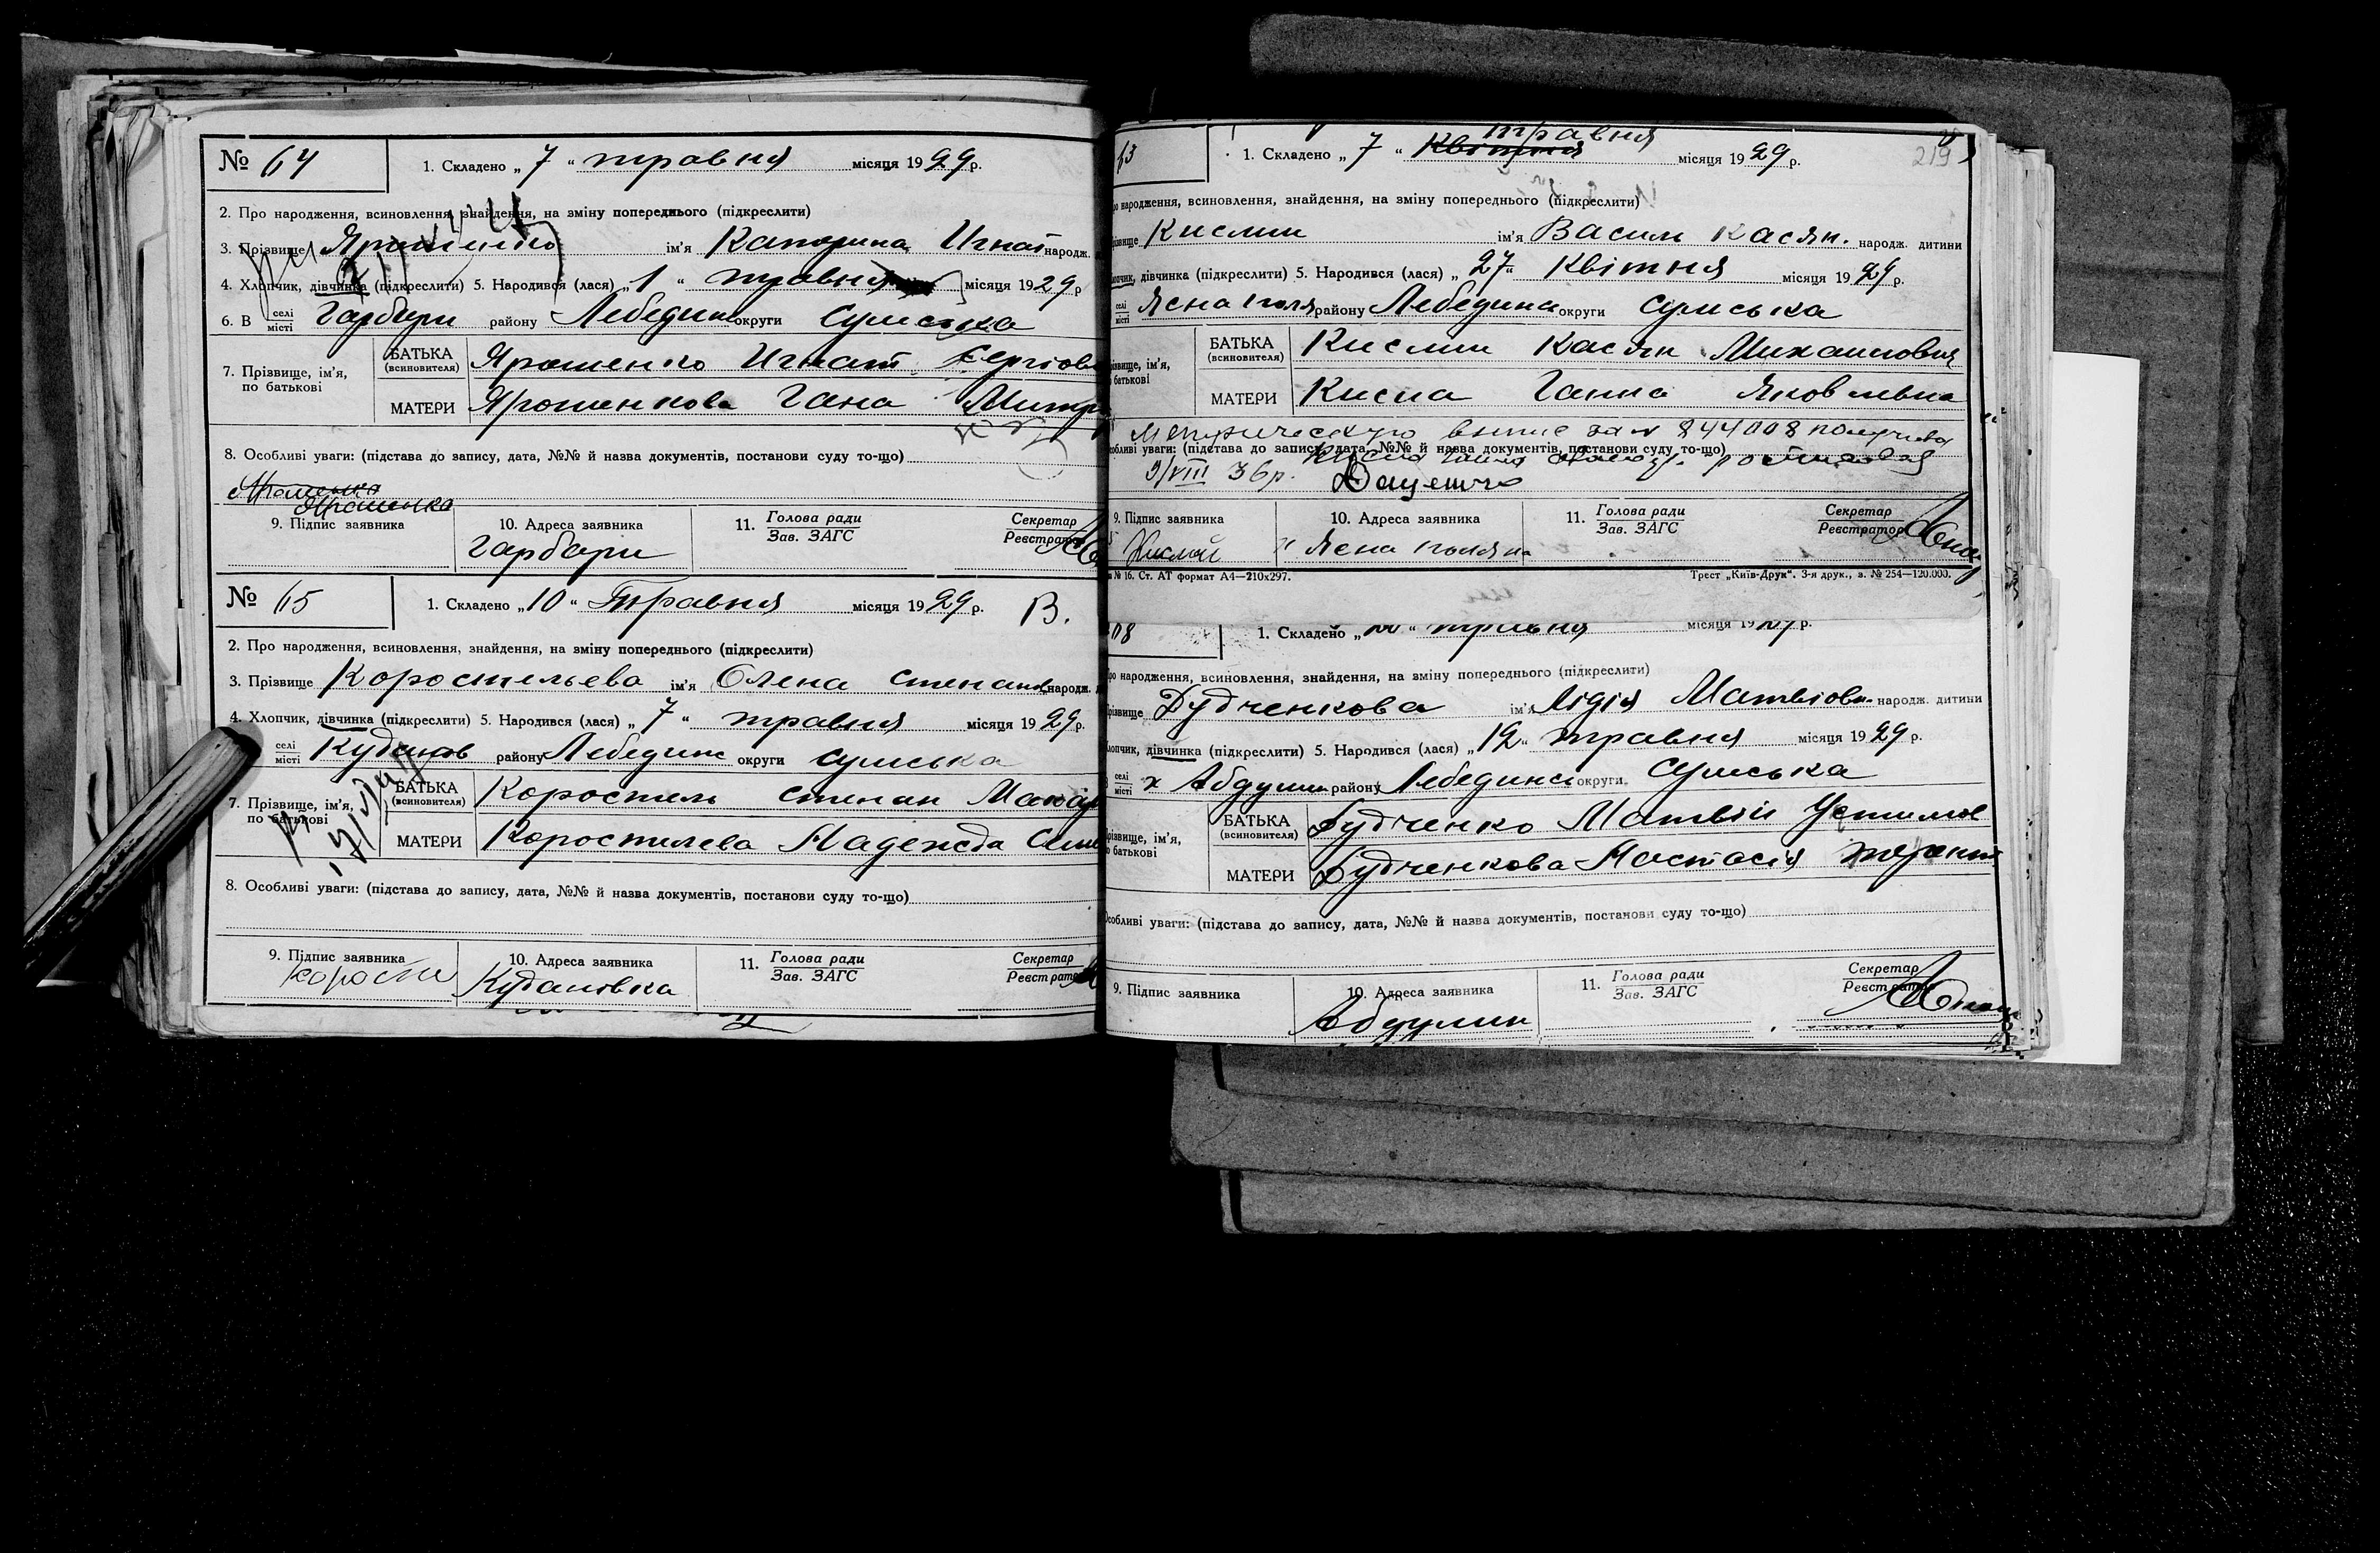 № 64
1. Складено „ 7 “ травня місяця 1929 р.
2. Про народження, всиновлення, знайдення, на зміну попереднього (підкреслити)
3. Прізвище ім'я Катерина Игнат народж.
4. Хлопчик, дівчинка (підкреслити) 5. Народився (лася) „ 1 “ травня місяця 1929 р
6. В селі місті Гарбари району Лебединс округи Сумська
7. Прізвище, ім'я, по батькові
БАТЬКА (всиновителя) Ярошенко Игнат Сергіов
МАТЕРИ Ярошенкова Гана Митр
8. Особливі уваги: (підстава до запису, дата, №№ й назва документів, постанови суду то-що)
Ярошенко
9. Підпис заявника
10. Адреса заявника
Гарбари
11. Голова ради Зав. ЗАГС
Секретар Реєстратор
№ 65
1. Складено „ 10 “ Травня місяця 1929 р. В.
2. Про народження, всиновлення, знайдення, на зміну попереднього (підкреслити)
3. Прізвище Коростельева ім'я Олена Степан народж.
4. Хлопчик, дівчинка (підкреслити) 5. Народився (лася) „ 7 “ травня місяця 1929 р.
селі місті району Лебединс округи Сумська
7. Прізвище, ім'я, по батькові
БАТЬКА (всиновителя) Коростель Степан Макар
МАТЕРИ Коростилева Надежда
8. Особливі уваги: (підстава до запису, дата, №№ й назва документів, постанови суду то-що)
9. Підпис заявника
10. Адреса заявника
Кудановка
11. Голова ради Зав. ЗАГС
Секретар Реєстратор
63
1. Складено „ 7 “ Квітня травня місяця 1929 р.
219
народження, всиновлення, знайдення, на зміну попереднього (підкреслити)
Кислий ім'я Василь Касян. народж. дитини
дівчинка (підкреслити) 5. Народився (лася) „ 27 “ Квітня місяця 1929 р.
селі місті Ясна Поля району Лебединс округи Сумська
БАТЬКА (всиновителя) Кислий Касян Михайлович
МАТЕРИ Кисла Ганна Яковлевна
Метрическую выпис за № 844008 получила
уваги: (підстава до запису, дата, №№ й назва документів, постанови суду то-що)
9/VIII 36р.
9. Підпис заявника
Кислый
10. Адреса заявника
Ясна поляна
11. Голова ради Зав. ЗАГС
Секретар Реєстратор
№ 16. Ст. АТ формат А4—210х297.
Трест „Київ-Друк“. 3-я друк., з. № 254—120.000.
1. Складено травня місяця 19 р.
народження, всиновлення, знайдення, на зміну попереднього (підкреслити)
Дудченкова ім'я Лідія Матвіовн. народж. дитини
дівчинка (підкреслити) 5. Народився (лася) „ 12 “ травня місяця 1929 р.
селі місті х Абдулин району Лебединс округи Сумська
БАТЬКА (всиновителя) Дудченко Матвій Устимов
МАТЕРИ Дудченкова Настасія
уваги: (підстава до запису, дата, №№ й назва документів, постанови суду то-що)
9. Підпис заявника
10. Адреса заявника
Абдулин
11. Голова ради Зав. ЗАГС
Секретар Реєстратор